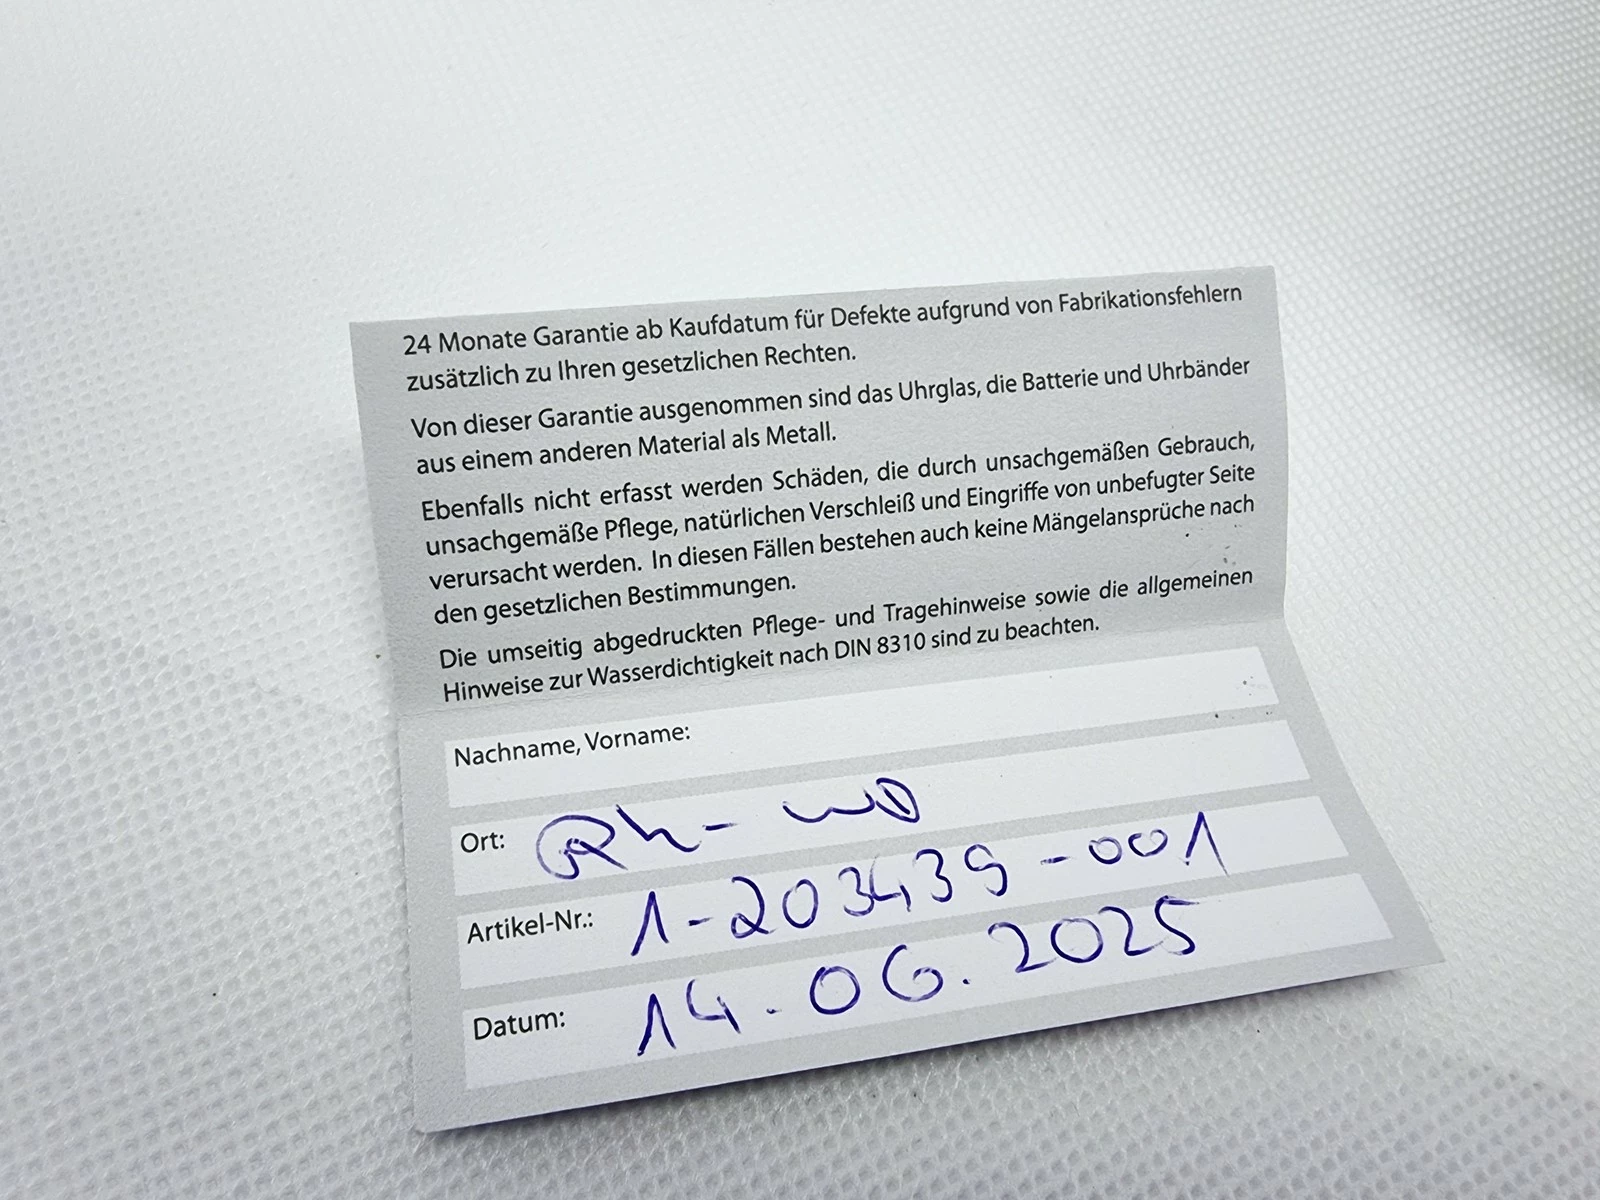 24 Monate Garantie ab Kaufdatum für Defekte aufgrund von Fabrikationsfehlern
zusätzlich zu Ihren gesetzlichen Rechten.
Von dieser Garantie ausgenommen sind das Uhrglas, die Batterie und Uhrbänder
aus einem anderen Material als Metall.
Ebenfalls nicht erfasst werden Schäden, die durch unsachgemäßen Gebrauch,
unsachgemäße Pflege, natürlichen Verschleiß und Eingriffe von unbefugter Seite
verursacht werden. In diesen Fällen bestehen auch keine Mängelansprüche nach
den gesetzlichen Bestimmungen.
Die umseitig abgedruckten Pflege- und Tragehinweise sowie die allgemeinen
Hinweise zur Wasserdichtigkeit nach DIN 8310 sind zu beachten.
Nachname, Vorname:
Ort:
Artikel-Nr.: 1-203439-001
Datum: 14.06.2025